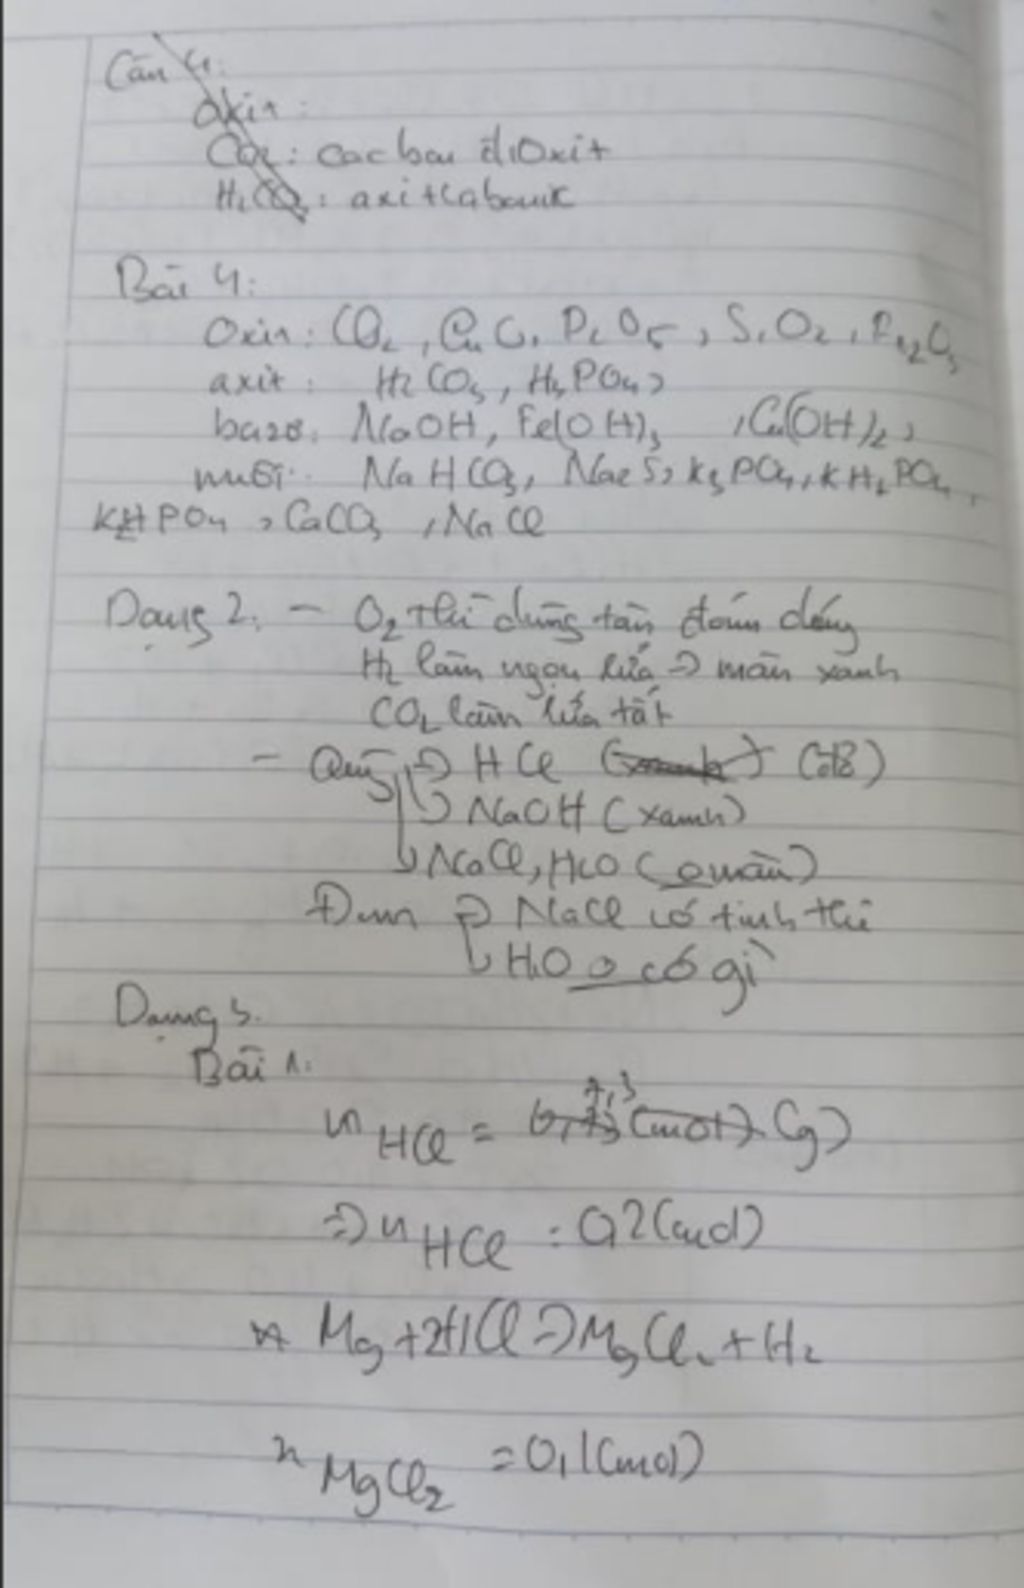 Câu 4:
Oxit:
CO2: cacbon đioxit
H2CO3: axit cabonic
Bài 4:
Oxit: CO2, CuO, P2O5, SiO2, Fe2O3
axit: H2CO3, H3PO4,
bazơ: NaOH, Fe(OH)3, Cu(OH)2,
muối: NaHCO3, Na2S, K3PO4, KH2PO4,
K2HPO4, CaCO3, NaCl
Dạng 2: - O2 thì dùng tàn đóm đóng
H2 làm ngọn lửa => màu xanh
CO2 làm lửa tắt
- Quỳ => HCl (đỏ)
NaOH (xanh)
NaCl, H2O (o màu)
Đun => NaCl có tinh thể
H2O o có gì
Dạng 3.
Bài 1.
m HCl = 7,3 (g)
=> n HCl = 0,2 (mol)
Mg + 2HCl => MgCl2 + H2
n MgCl2 = 0,1 (mol)